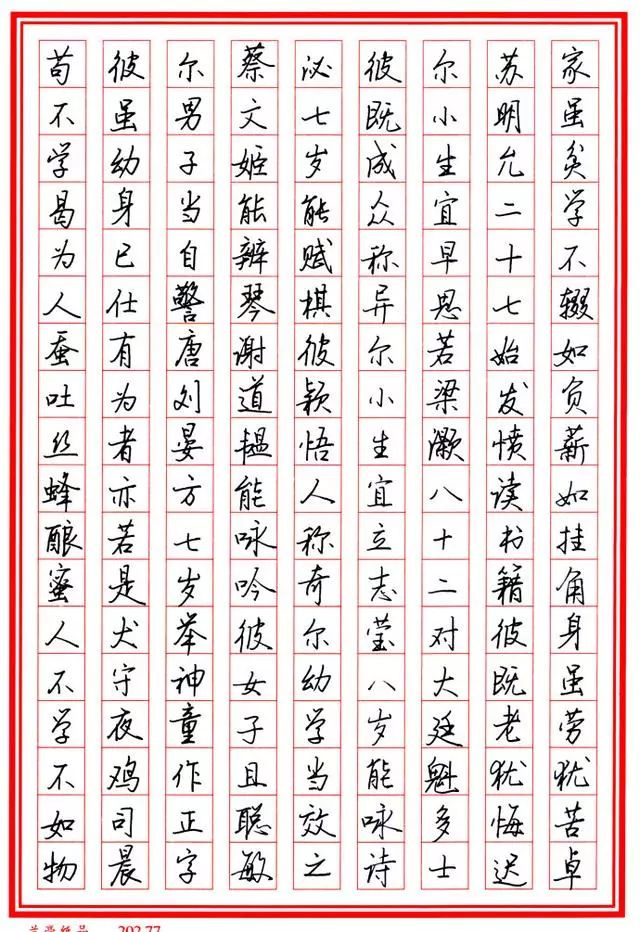 家虽贫学不辍如负薪如挂角身虽劳犹苦卓
苏明允二十七始发愤读书籍彼既老犹悔迟
尔小生宜早思若梁灏八十二对大廷魁多士
彼既成众称异尔小生宜立志莹八岁能咏诗
泌七岁能赋棋彼颖悟人称奇尔幼学当效之
蔡文姬能辨琴谢道韫能咏吟彼女子且聪敏
尔男子当自警唐刘晏方七岁举神童作正字
彼虽幼身已仕有为者亦若是犬守夜鸡司晨
苟不学曷为人蚕吐丝蜂酿蜜人不学不如物